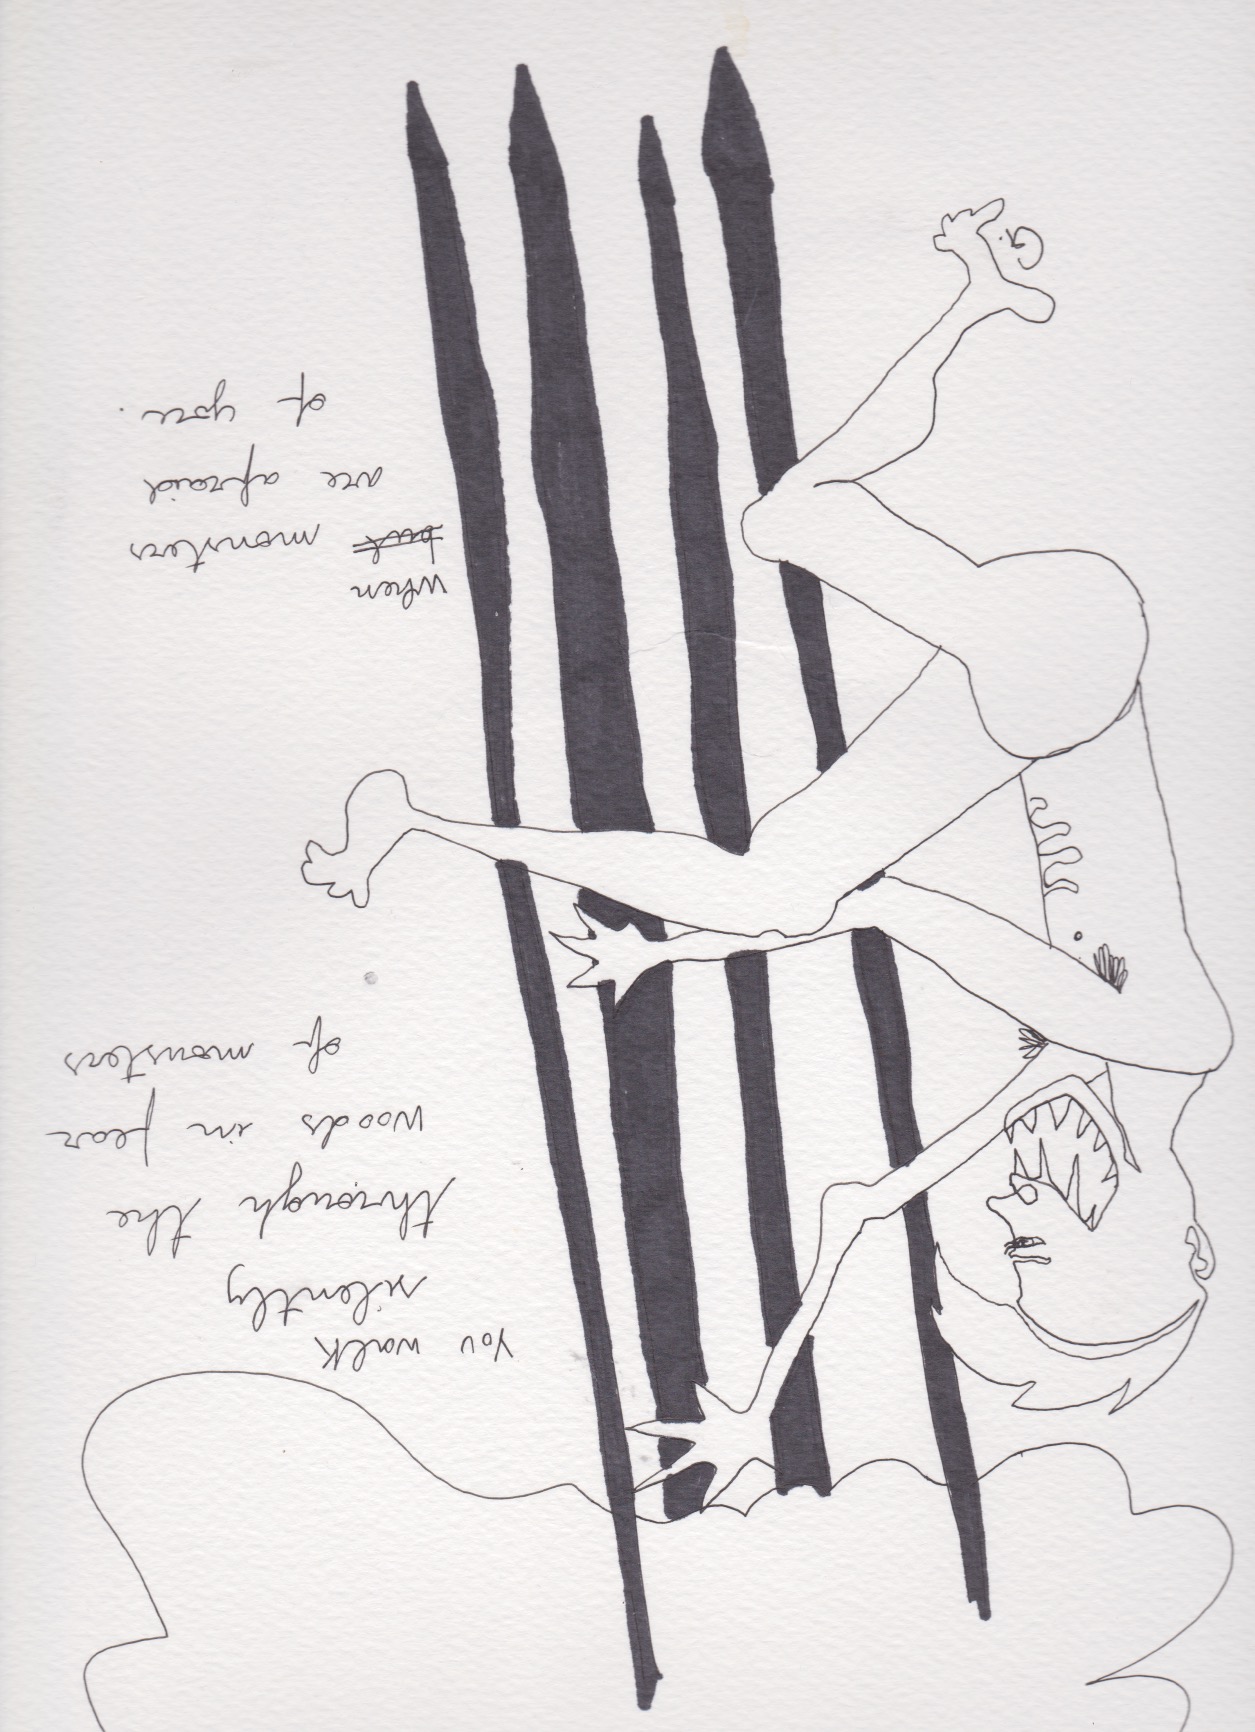 You walk
silently
through the
woods in fear
of monsters
When
but monsters
are afraid
of you.